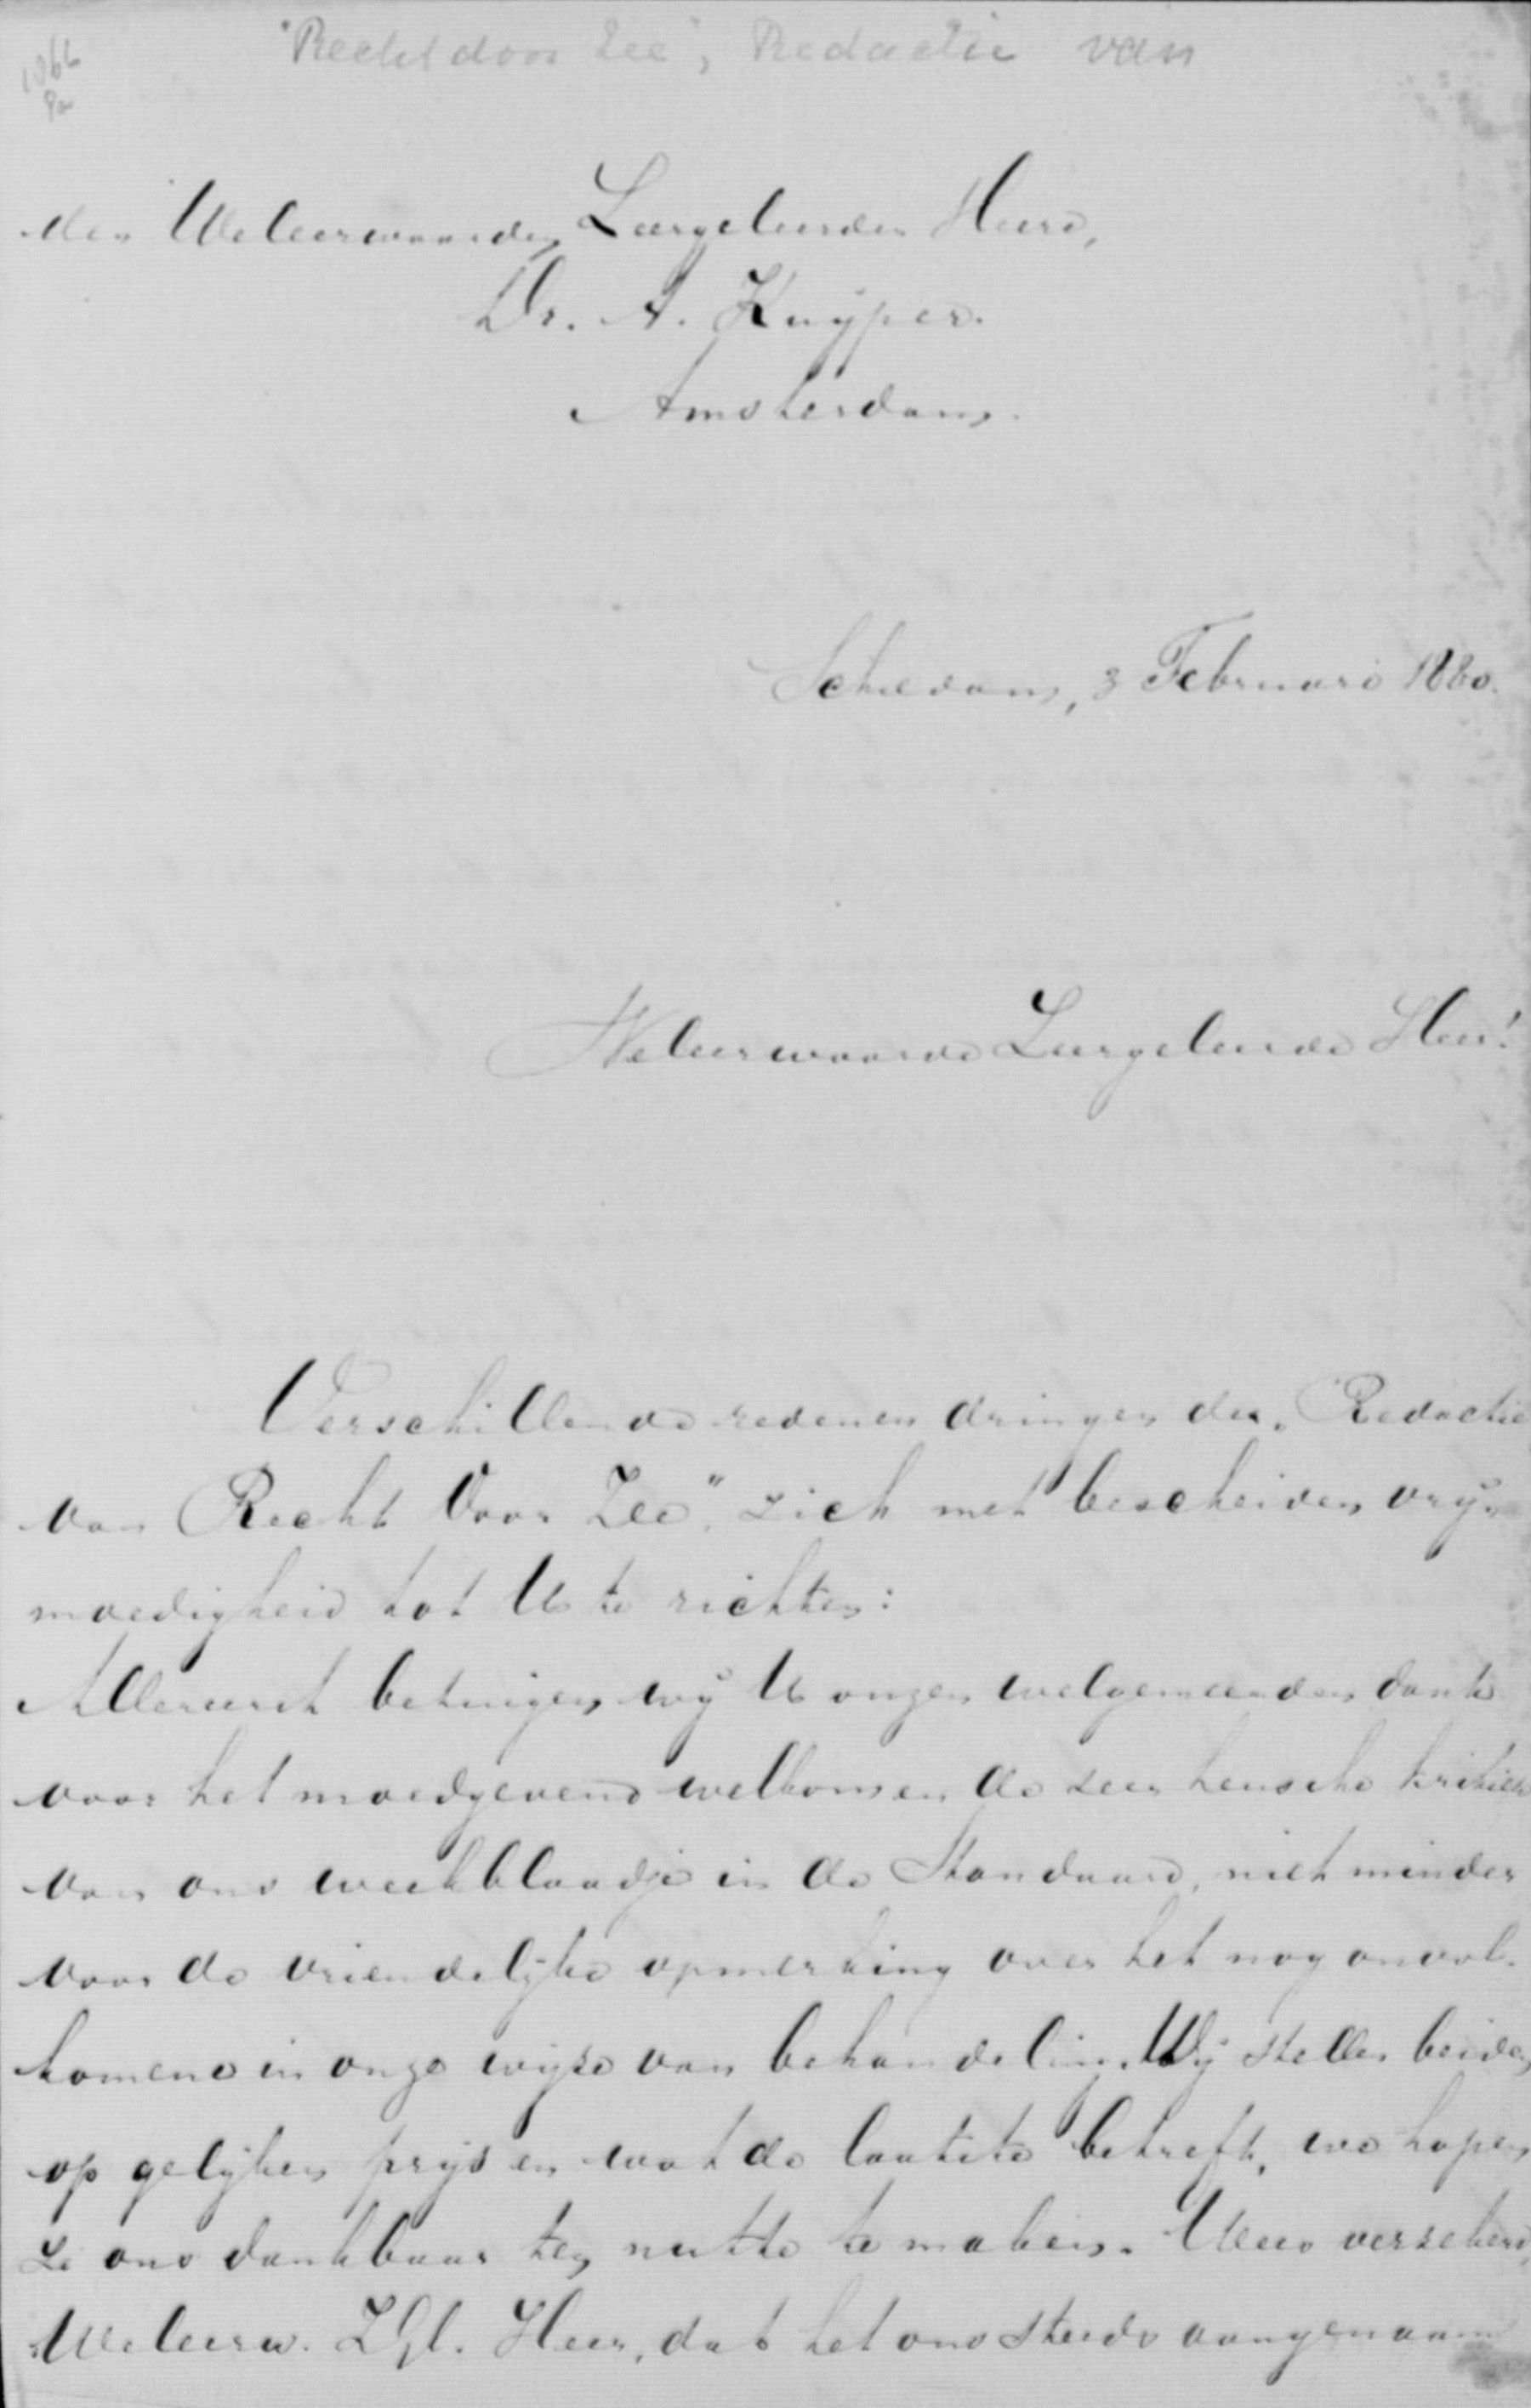 1066
"Recht door Zee", Redactie van
den Weleerwaarden Zeergeleerden Heere,
Dr. A. Kuyper.
Amsterdam.
Schiedam, 3 Februari 1880.
Weleerwaarde Zeergeleerde Heer!
Verschillende redenen dringen de „Redactie
van Recht Voor Zee", zich met bescheiden vrij-
moedigheid tot U te richten:
Allereerst betuigen wij U onzen welgemeenden dank
voor het moedgevend welkom en de zeer heusche kritiek
van ons weekblaadje in de Standaard, niet minder
voor de vriendelijke opmerking over het nog onvol-
komene in onze wijze van behandeling. Wij stellen beiden
op gelijken prijs en wat de laatste betreft, we hopen
ze ons dankbaar ten nutte te maken. Wees verzekerd,
Weleerw. ZGl. Heer, dat het ons steeds aangenaam